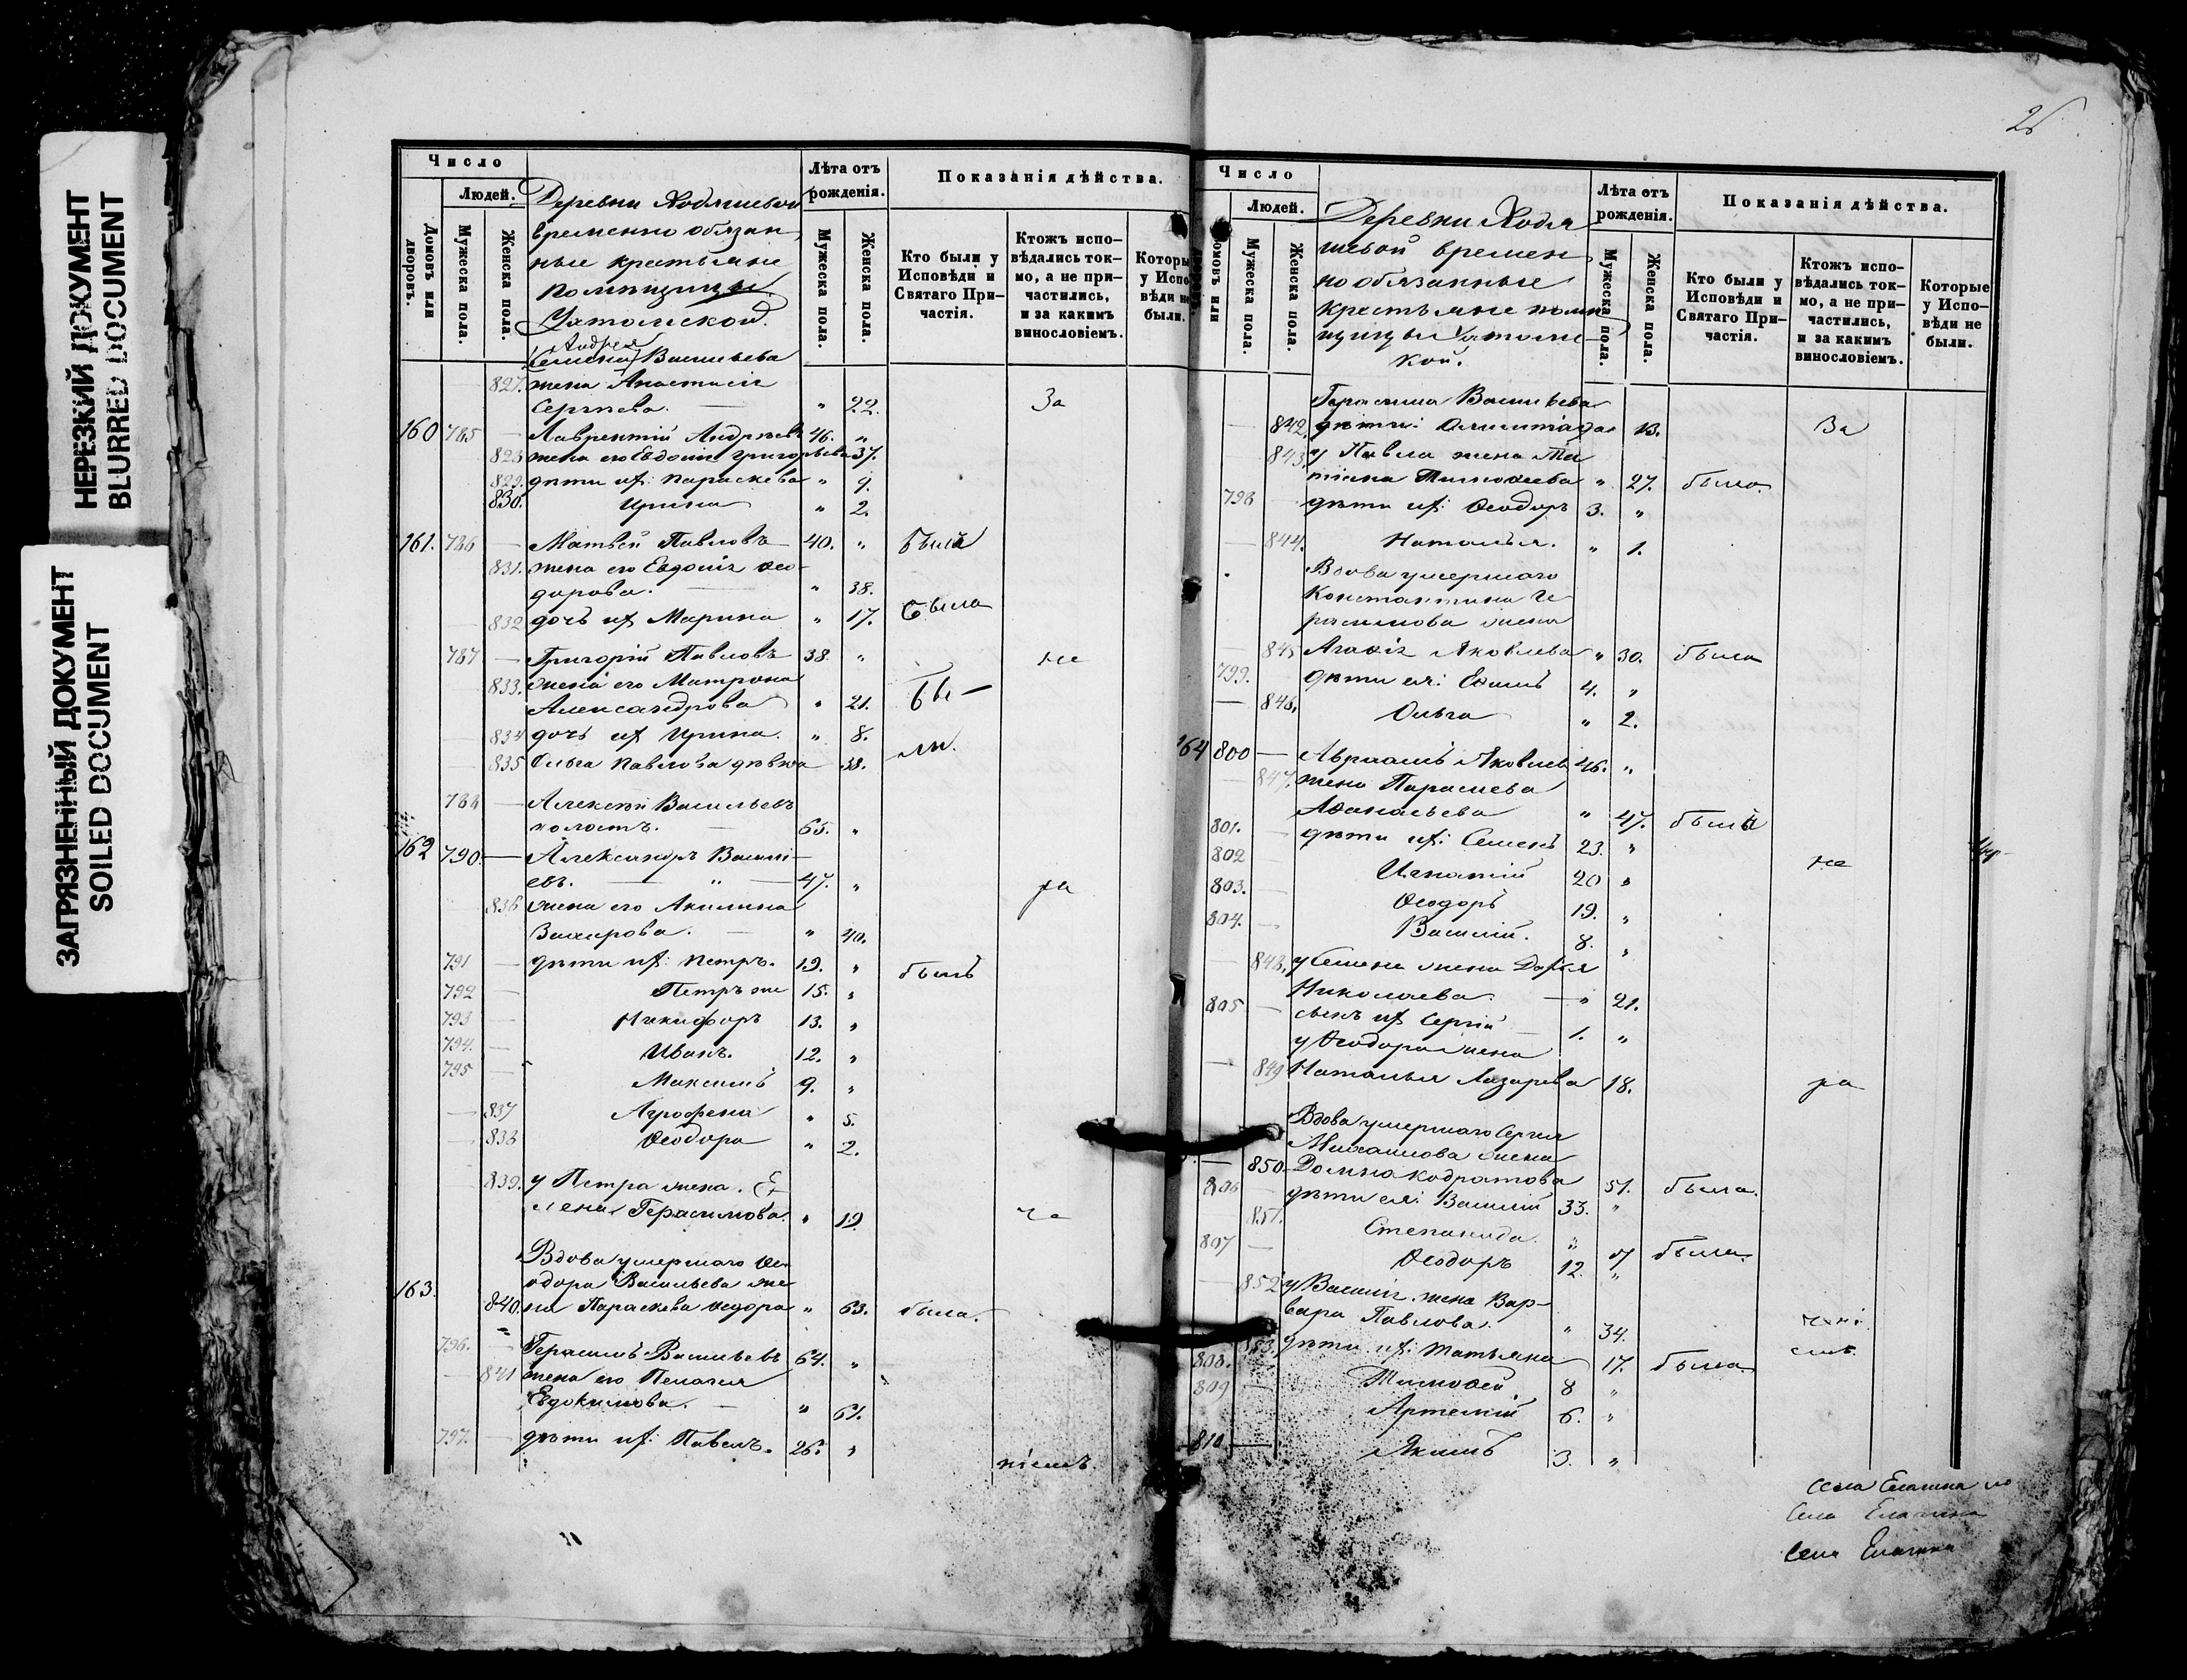 НЕРЕЗКИЙ ДОКУМЕНТ
BLURRED DOCUMENT
ЗАГРЯЗНЕННЫЙ ДОКУМЕНТ
SOILED DOCUMENT
Число
Людей.
Домовъ или дворовъ.
Мужеска пола.
Женска пола.
Деревни
временно обязан
ные крестьяне
помѣщицы
Ухтомской.
Лѣта отъ рожденія.
Мужеска пола.
Женска пола.
Показанія дѣйства.
Кто были у Исповѣди и Святаго При-частія.
Ктожъ испо-вѣдались ток-мо, а не при-частились, и за какимъ винословіемъ.
Которы у Испо вѣди не были.
Андрея
(Семена) Васильева
827. жена Анастасія
Сергѣева. " 22. За
160 785 Лаврентій Андреевъ 46. "
828 жена его Евдокія Григорьева 37.
829. дѣти их: Параскева " 9.
830. Ирина " 2.
161. 786 Матвей Павловъ 40. " былъ
831. жена его Евдокія Ѳео-
дорова. " 38.
832 дочь их Марина " 17. была
787 Григорій Павловъ 38. " не
833. жена его Матрона
Александрова " 21. бы-
834 дочь их Ирина. " 8.
835 Ольга Павлова дѣвка 38. ли.
788 Алексѣй Васильевъ
холостъ. 65. "
162 790. Александръ Василь-
евъ. " 47. " ра
836 жена его Акилина
" 40.
791 дѣти их: Петръ. 19. " былъ
792 Петръ же 15. "
793 Никифоръ 13. "
794. Иванъ. 12. "
795 Максимъ 9. "
837 Агрофена " 5.
838 Ѳеодора " 2.
839. у Петра жена. Е-
лена Герасимова. " 19
Вдова умершаго Ѳе-
одора Васильева же-
163. 840. на Параскева Ѳедора " 63. была.
796. Герасимъ Васильевъ 64. "
841 жена его Пелагея
Евдокимова. " 61.
797. дѣти их: Павелъ. 26. "
ніемъ.
26
Число
Людей.
омовъ или
Мужеска пола.
Женска пола.
Деревни Ходя
шевой времен
но обязанные
крестьяне помѣ
щицы Ухтомс-
кой.
Лѣта отъ рожденія.
Мужеска пола.
Женска пола.
Показанія дѣйства.
Кто были у Исповѣди и Святаго При-частія.
Ктожъ испо-вѣдались ток-мо, а не при-частились, и за какимъ винословіемъ.
Которые у Испо-вѣди не были.
Герасима Васильева
842. дѣти: Олимпіада 13. За
843. у Павла жена Та
тіана Тимофеева " 27. была.
798 дѣти их: Ѳеодоръ 3. "
844. Наталья. " 1.
Вдова умершаго
Константина Ге
расимова жена
845 Агафія Яковлева " 30. была
799. дѣти ея: Ефимъ 4. "
846. Ольга " 2.
164 800 Авраамъ Яковлев 46. "
847. жена Парасмева
Аѳанасьева " 47. былъ
801. дѣти их: Семенъ 23. "
802 Игнатій 20 " не
803. Ѳеодоръ 19. "
804. Василій. 8. "
848. у Семена жена Дарья
Николаева. " 21.
805 сынъ их Сергій 1. "
у Ѳеодора жена
849 Наталья Лазарева 18. ра
Вдова умершаго Сергия
Михаилова жена
850. Домна Кодратова 51. была.
806 дѣти ея: Василій 33. "
851. Степанида.
807 Ѳеодоръ 12. " была.
852 у Василія. жена Вар-
вара Павлова. " 34.
853. дѣти их: Татьяна 17. была.
808. Тимофей. 8 "
809 Артемій 6. "
810 Якимъ 3. "
села Елагина
Села Елагина
села Елагина